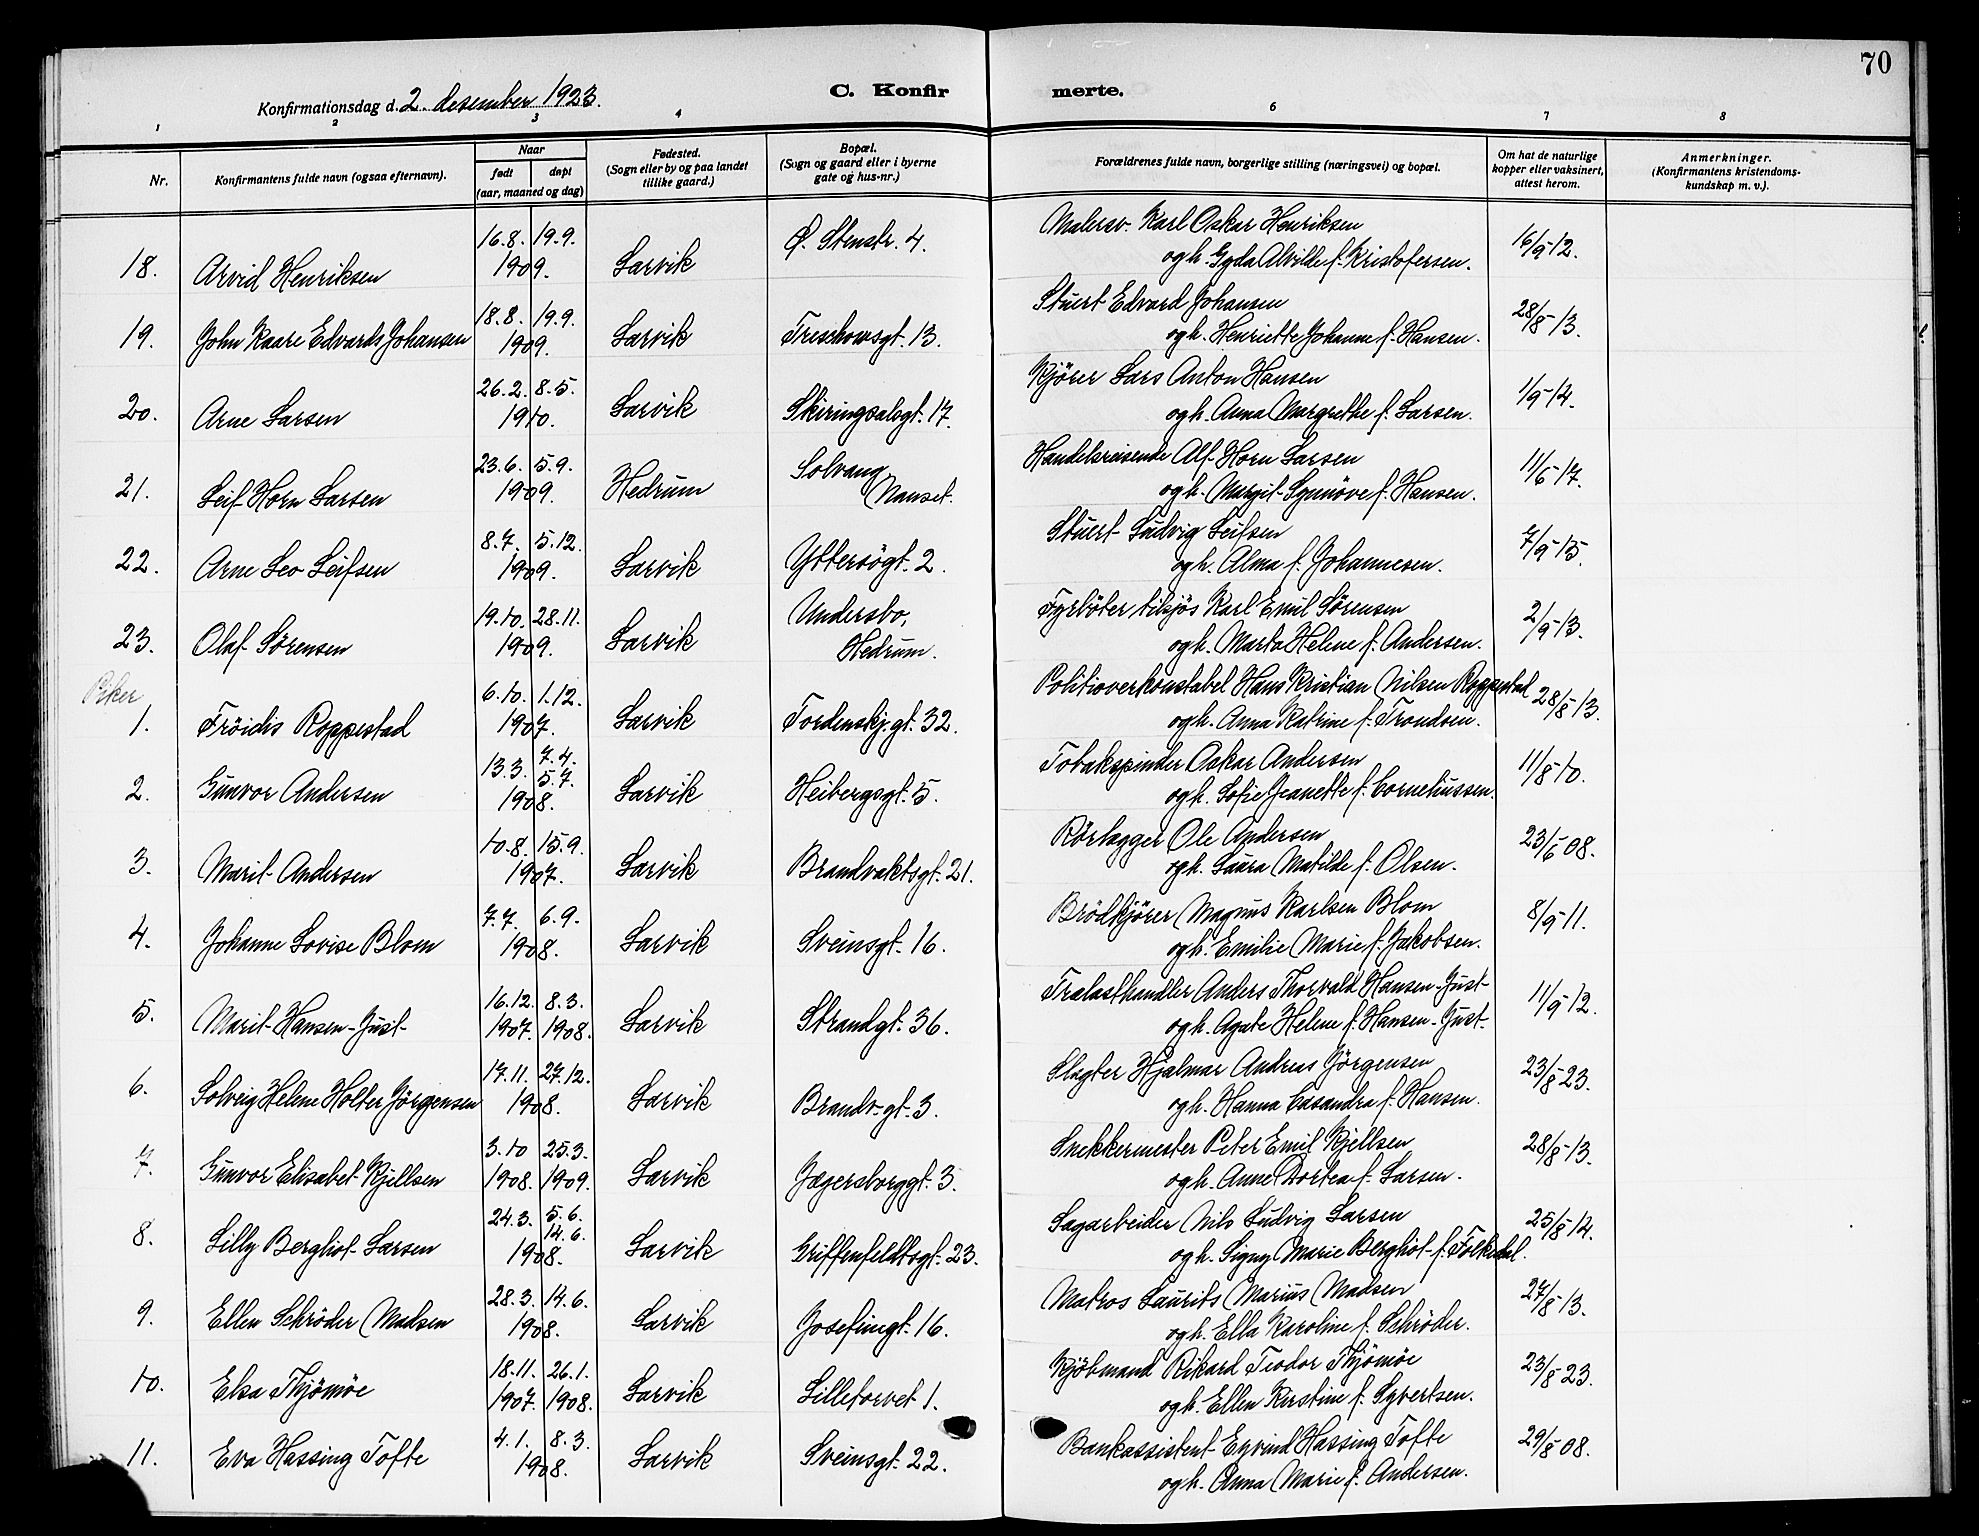 70
Konfirmationsdag d. 2. desember 1923.
C. Konfir
merte.
1 2 3 4 6 7 8
Nr.
Konfirmantens fulde navn (ogsaa efternavn).
Naar
født døpt
(aar, maaned og dag)
Fødested.
(Sogn eller by og paa landet
tillike gaard.)
Bopæl.
(Sogn og gaard eller i byerne
gate og hus-nr.)
Forældrenes fulde navn, borgerlige stilling (næringsvei) og bopæl.
Om hat de naturlige
kopper eller vaksinert,
attest herom.
Anmerkninger.
(Konfirmantens kristendoms-
kundskap m. v.).
18. Arvid Henriksen 16.8. 19.9. 1909. Larvik Ø. Stenstr. 4. Malersv. Karl Oskar Henriksen 16/9-12.
og h. Gyda Alvilde f. Kristofersen.
19. John Kaare Edvards Johansen 18.8. 19.9. 1909. Larvik Treschowsgt. 13. Stuert Edvard Johansen 28/8-13.
og h. Henriette Johanne f. Hansen.
20. Arne Larsen 26.2. 8.5. 1910. Larvik Skiringsalsgt. 17. Kjörer Lars Anton Hansen 1/9-14.
og h. Anna Margrethe f. Larsen.
21. Leif Horn Larsen 23.6. 5.9. 1909. Hedrum Solvang Nanset. Handelsreisende Alf Horn Larsen 11/6-17.
og h. Margit Synnöve f. Hansen.
22. Arne Leo Leifsen 8.7. 5.12. 1909. Larvik Yttersögt. 2. Stuert Ludvig Leifsen 7/9-15.
og h. Alma f. Johannesen.
23. Olaf Sörensen 19.10. 28.11. 1909. Larvik Undersbo, Hedrum. Fyrböter tilsjös Karl Emil Sörensen 2/9-13.
og h. Marta Helene f. Andersen.
Piker
1. Fröidis Roppestad 6.10. 1.12. 1907. Larvik Tordenskj.gt. 32. Politioverkonstabel Hans Kristian Nilsen Roppestad 28/8-13.
og h. Anna Katrine f. Trondsen.
2. Gunvor Andersen 13.3. 7.4. 5.7. 1908. Larvik Heibergsgt. 5. Tobakspinder Oskar Andersen 11/8-10.
og h. Sofie Jeanette f. Corneliussen.
3. Marit Andersen 10.8. 15.9. 1907. Larvik Brandvaktsgt. 21. Rörlægger Ole Andersen 23/6-08.
og h. Laura Matilde f. Olsen.
4. Johanne Lovise Blom 7.7. 6.9. 1908. Larvik Sveinsgt. 16. Brödkjörer Magnus Karlsen Blom 8/9-11.
og h. Emilie Marie f. Jakobsen.
5. Marit Hansen-Just 16.12. 1907. 8.3. 1908. Larvik Strandgt. 36. Trælasthandler Anders Thorvald Hansen-Just 11/9-12.
og h. Agate Helene f. Hansen-Just
6. Solveig Helene Holter Jörgensen 17.11. 27.12. 1908. Larvik Brandv.gt. 3. Slagter Hjalmar Andreas Jörgensen 23/8-23.
og h. Hanna Casandra f. Hansen.
7. Gunvor Elisabet Kjellsen 3.10 1908. 25.3. 1909. Larvik Jægersborggt. 3. Snekkermester Peter Emil Kjellsen 28/8-13.
og h. Anne Dortea f. Larsen.
8. Lilly Bergliot Larsen 24.3. 5.6. 14.6. 1908. Larvik Griffenfeldtsgt. 23. Sagarbeider Nils Ludvig Larsen 25/8-14.
og h. Signy Marie Bergliot f. Folkedal.
9. Ellen Schröder Madsen 28.3. 14.6. 1908. Larvik Josefinegt. 16. Matros Laurits Marius Madsen 27/8-13.
og h. Ella Karoline f. Schröder.
10. Elsa Thjömöe 18.11. 1907. 26.1. 1908. Larvik Lilletorvet 1. Kjöbmand Rikard Teodor Thjömöe 23/8-23.
og h. Ellen Kirstine f. Syvertsen.
11. Eva Hassing Tofte 4.1. 8.3. 1908. Larvik Sveinsgt. 22. Bankassistent Eyvind Hassing Tofte 29/8-08.
og h. Anna Marie f. Andersen.